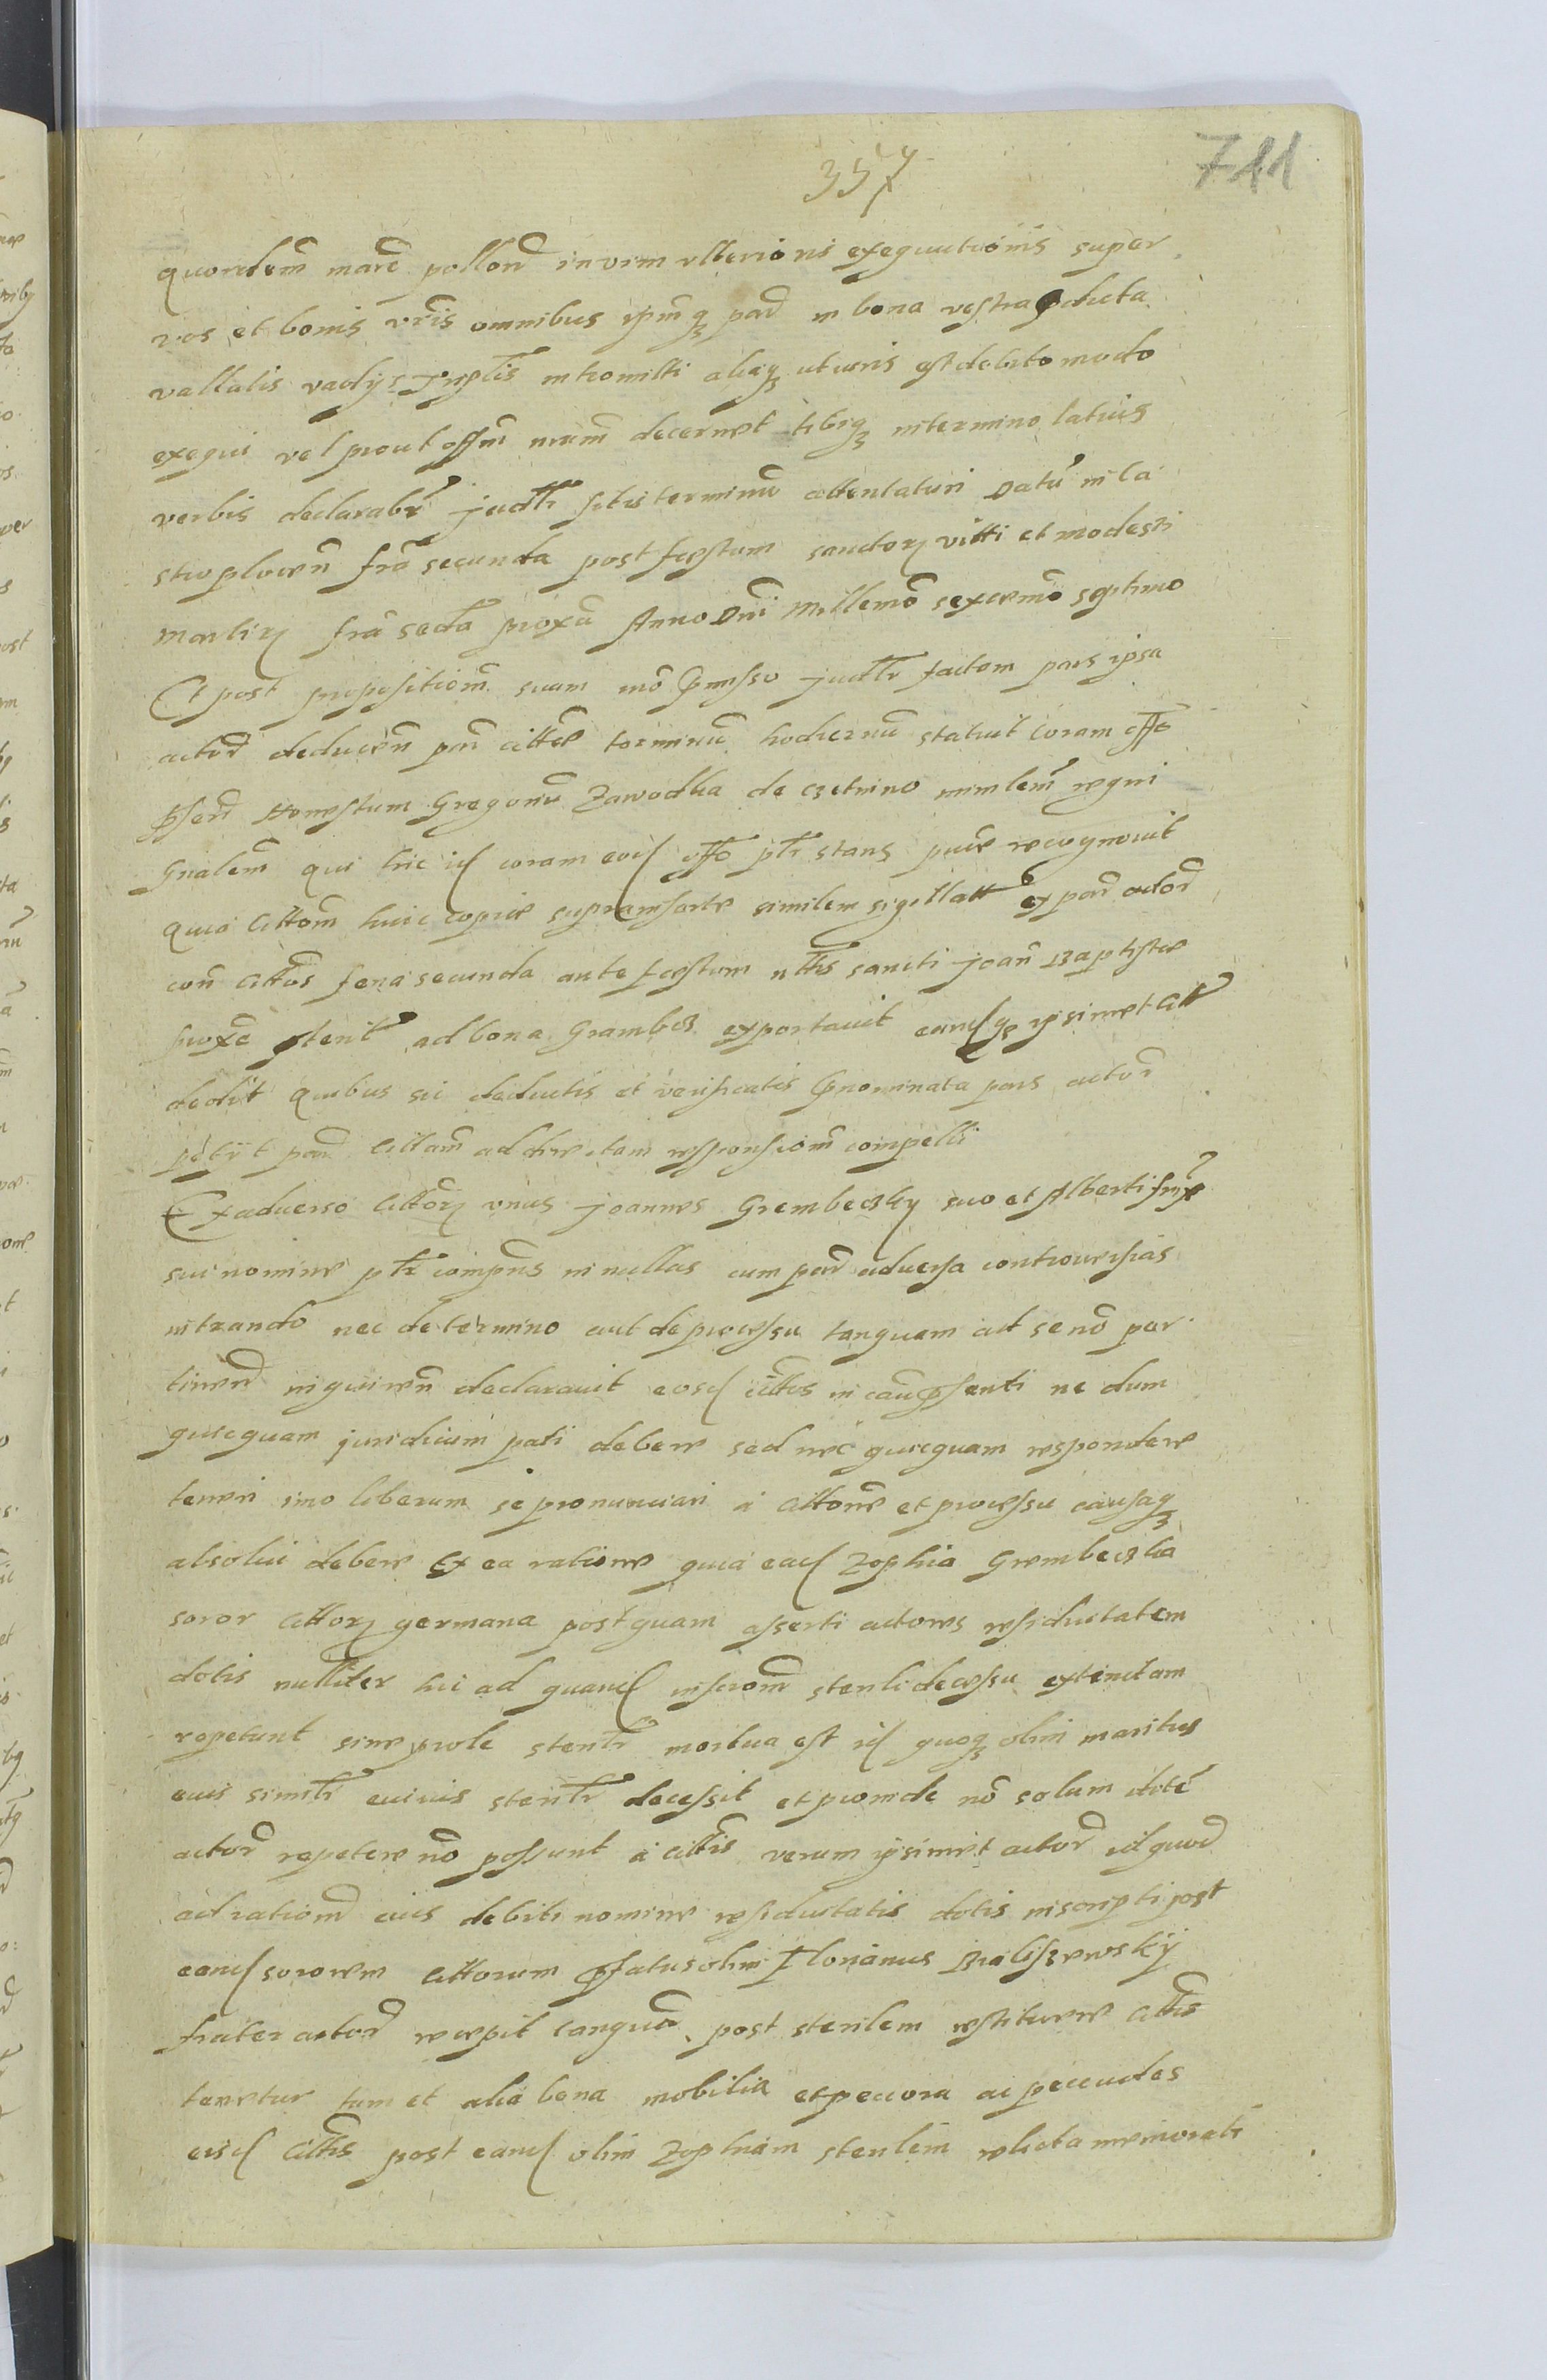 357
711
quondam marc pollon in vim ulterioris exequutionis super
vos et bonis vris omnibus ipmq3 par in bona vestra pdicta
vallatis vadijs tripltis intromitti aliaq3 ut iuris est debito modo
exequi vel prout offm nrum decernet tibiq3 in termino latius
verbis declarabr judtr sitis terminu attentaturi Datu in ca
stro plocen fria secunda post festum sanctor viti et modesti
martir fria secda proxa Anno Dni Millemo sexcemo septimo
Et post propositiom suam mo pmisso judtr factam pars ipsa
actor deducen par cittae terminu hodiernu statuit coram offo
pscn Honestum Gregoriu Zawodka de czetnino mimlem regni
Gnalem qui hic id coram eod offo ptr stans pure recognovit
quia cittom huic copiae suprainsertae similem sigillatt ex par actor
con cittos feria secunda ante festum nttis sancti joan Baptistae
proxe pterit ad bona Grambcz exportavit eandq3 ipsimet citt
dedit quibus sic deductis et verificatis pnominata pars actor
petijt par cittam ad directam responsiom compelli
Exadverso cittor unus joannes Grembeczky suo et Alberti fris
sui nomine ptr compns in nullas cum par adversa controversias
intrando nec de termino aut de processu tanquam ad se no per
tinen inquiren declaravit eosd cittos in cau psenti ne dum
quicquam juridicum pati debere sed nec quicquam respondere
teneri imo liberum se pronunciari a cittone et processu causaq3
absolvi debere Ex ea ratione quia ead Zophia Grembeczka
soror cittor germana postquam asserti actores residuitatem
dotis nulliter hic ad quand inscrom sterili decessu extinctam
repetunt sine prole sterilr mortua est id quoq3 olim maritus
eius similr eiuius sterilr decessit et proinde no solum dote
actor repetere no possunt a cittis verum ipsimet actor id quod
ad rationem eius debiti nomine residuitatis dotis inscripti post
eand sororem cittorum pfatus olim Florianus Bialiszewsky
frater actor recepit tanqua post sterilem restituere cittis
tenetur tum et alia bona mobilia et peccora ac peccudes
eisd cittis post eand olim Zophiam sterilem relicta memorati